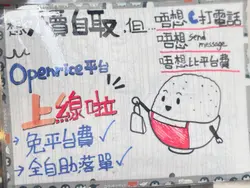 想買自取,但...唔想打電話
唔想send message
唔想比平台費
Openrice平台
上線啦
→免平台費✓
→全自助落單✓